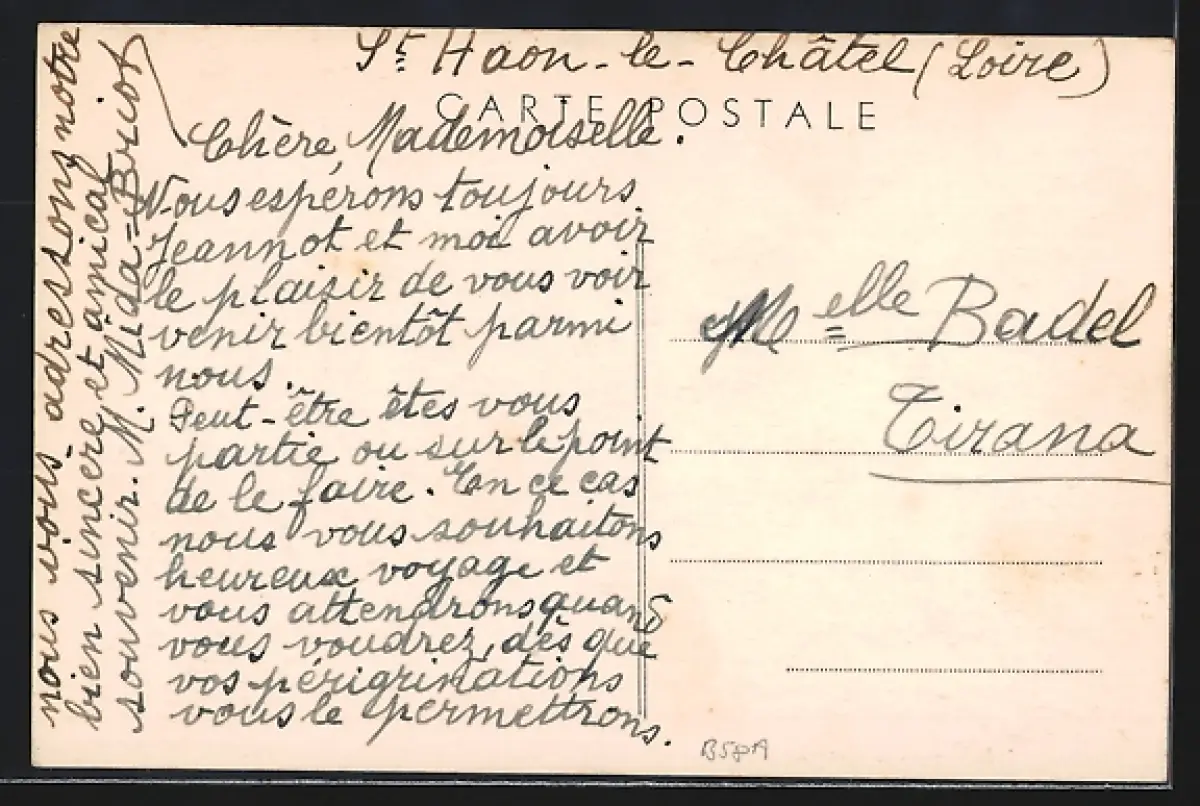 St Haon-le-Châtel (Loire)
CARTE POSTALE
Chère, Mademoiselle.
Nous espérons toujours
Jeannot et moi avoir
le plaisir de vous voir
venir bientôt parmi
nous.
Peut-être êtes vous
partie ou sur le point
de le faire. En ce cas
nous vous souhaitons
heureux voyage et
vous attendrons quand
vous voudrez, dès que
vos périgrinations
vous le permettrons.
nous vous adressons notre
bien sincère et amical
souvenir. M. Mida-Briot
Melle Badel
Tirana
B58A